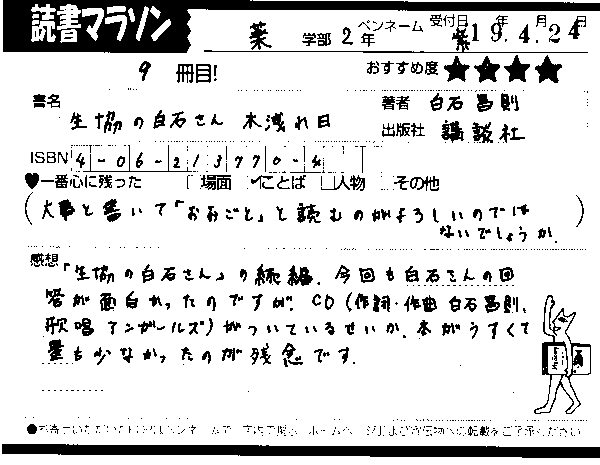 読書マラソン
薬 学部 2年 ペンネーム 紫 受付日 19年 4月 24日
9 冊目! おすすめ度 ★★★★
書名 生協の白石さん 木洩れ日
著者 白石昌則
出版社 講談社
ISBN 4-06-213770-4
♥一番心に残った □場面 ☑ことば □人物 □その他
(大事と書いて「おおごと」と読むのがよろしいのでは
ないでしょうか。)
感想 「生協の白石さん」の続編。今回も白石さんの回
答が面白かったのですが、CD(作詞・作曲 白石昌則、
歌唱 アンガールズ)がついているせいか、本がうすくて
量も少なかったのが残念です。